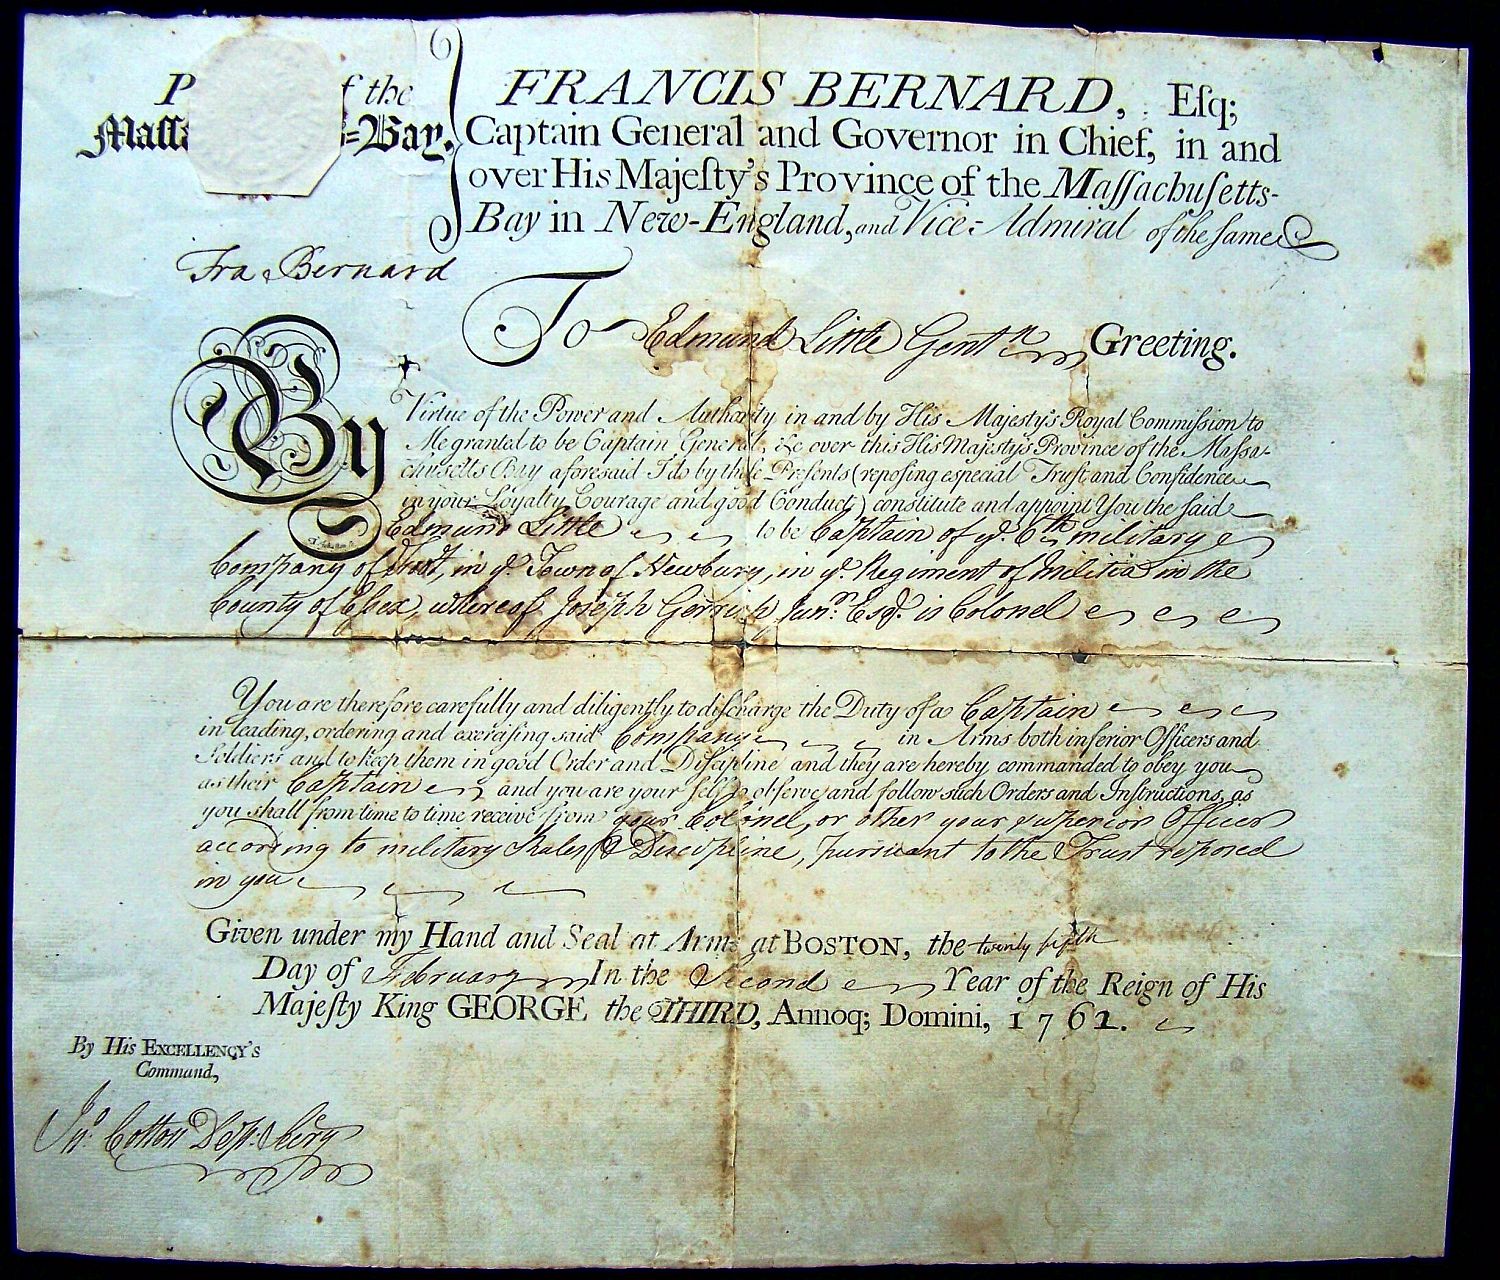 P f the
Massa =Bay.
FRANCIS BERNARD, Esq;
Captain General and Governor in Chief, in and
over His Majesty's Province of the Massachusetts-
Bay in New-England, and Vice-Admiral of the same
Fra Bernard
To Edmund Little Gentn Greeting.
By Virtue of the Power and Authority in and by His Majesty's Royal Commission to
Me granted to be Captain General, &c over this His Majesty's Province of the Massa-
chusetts Bay aforesaid I do by these Presents (reposing especial Trust and Confidence
in your Loyalty, Courage and good Conduct) constitute and appoint You the said
Edmund Little to be Captain of ye 6th military
Company of Foot, in ye Town of Newbury, in ye Regiment of Militia in the
County of Essex, whereof Joseph Gerrish Junr Esqr is Colonel
You are therefore carefully and diligently to discharge the Duty of a Captain
in leading, ordering and exercising said Company in Arms both inferior Officers and
Soldiers and to keep them in good Order and Discipline and they are hereby commanded to obey you
as their Captain and you are your self to observe and follow such Orders and Instructions, as
you shall from time to time receive from your Colonel, or other your superior Officer
according to military Rules & Discipline, pursuant to the Trust reposed
in you
Given under my Hand and Seal at Arms at BOSTON, the twenty fifth
Day of February In the Second Year of the Reign of His
Majesty King GEORGE the THIRD, Annoq; Domini, 1762.
By His EXCELLENCY'S
Command,
Jno Cotton Dep. Secry